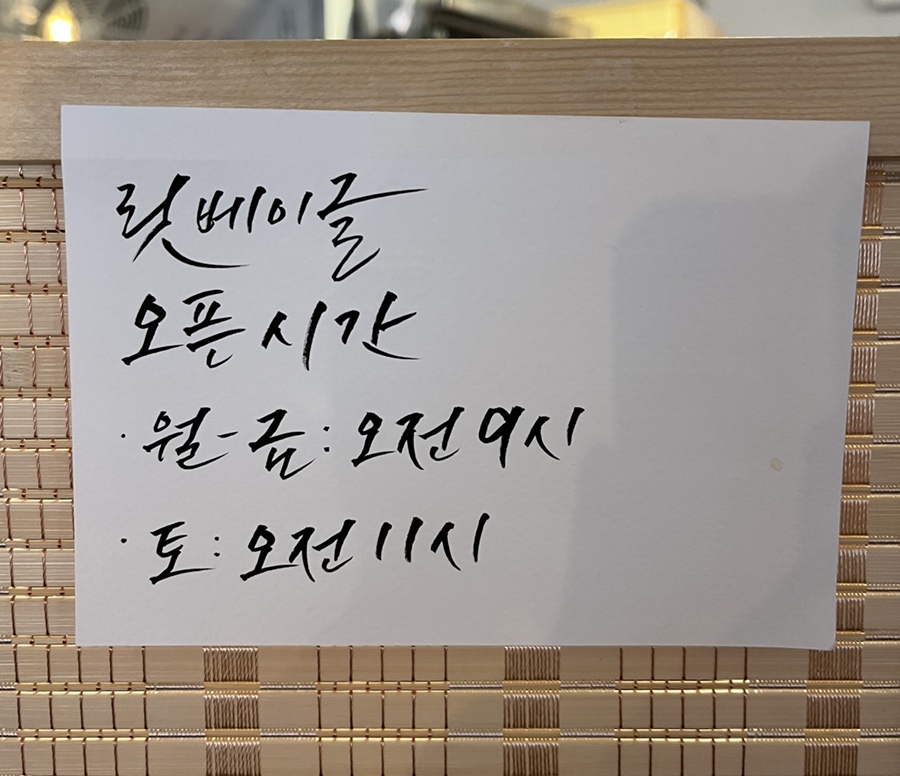 릿베이글
오픈시간
· 월-금 : 오전 9시
· 토 : 오전 11시